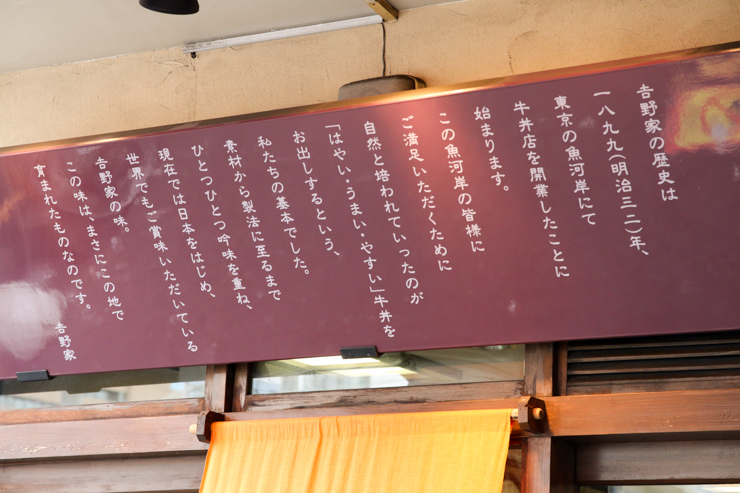 𠮷野家の歴史は
一八九九(明治三二)年、
東京の魚河岸にて
牛丼店を開業したことに
始まります。
この魚河岸の皆様に
ご満足いただくために
自然と培われていったのが
「はやい・うまい・やすい」牛丼を
お出しするという、
私たちの基本でした。
素材から製法に至るまで
ひとつひとつ吟味を重ね、
現在では日本をはじめ、
世界でもご賞味いただいている
𠮷野家の味。
この味は、まさにこの地で
育まれたものなのです。
𠮷野家